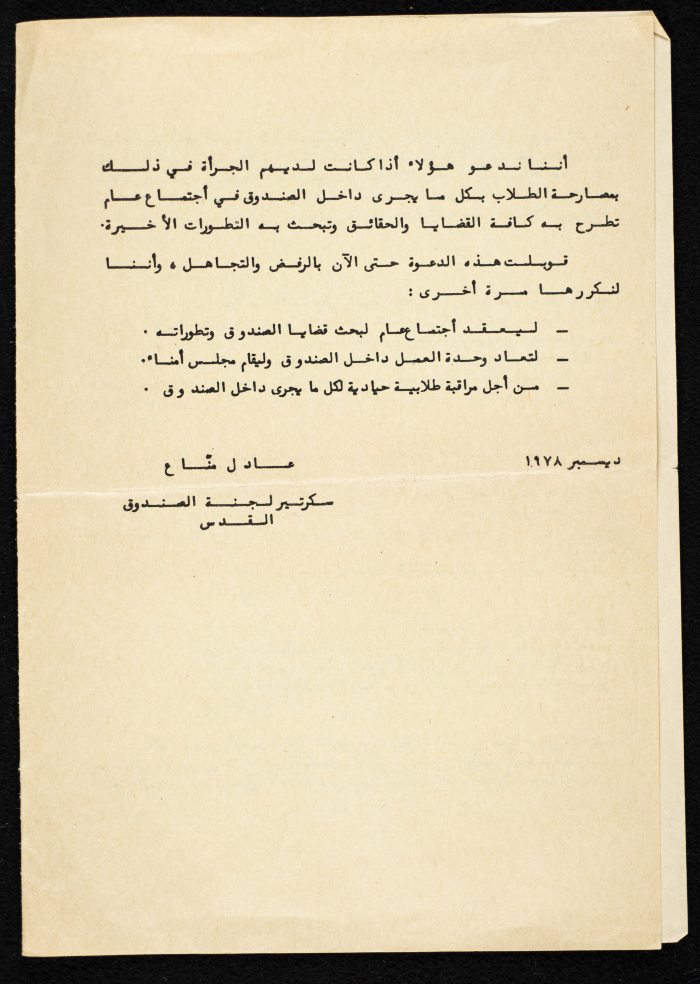 أننا ندعو هؤلاء أذا كانت لديهم الجرأة في ذلك
بمصارحة الطلاب بكل ما يجرى داخل الصندوق في أجتماع عام
تطرح به كافة القضايا والحقائق وتبحث به التطورات الأخيرة.
قوبلت هذه الدعوة حتى الآن بالرفض والتجاهل ، وأننا
لنكررها مرة أخرى :
— ليعقد أجتماع عام لبحث قضايا الصندوق وتطوراته .
— لتعاد وحدة العمل داخل الصندوق وليقام مجلس أمناء.
— من أجل مراقبة طلابية حيادية لكل ما يجرى داخل الصندوق .
ديسمبر ١٩٧٨
عادل منّاع
سكرتير لجنة الصندوق
القدس